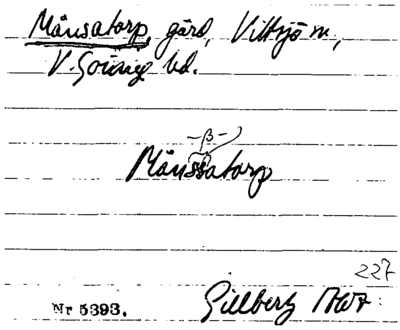 Månsatorp, gård, Vittsjö sn,
V. Göinge hd.
-β-
Månssatorp
227
Nr 5393. Gillberg